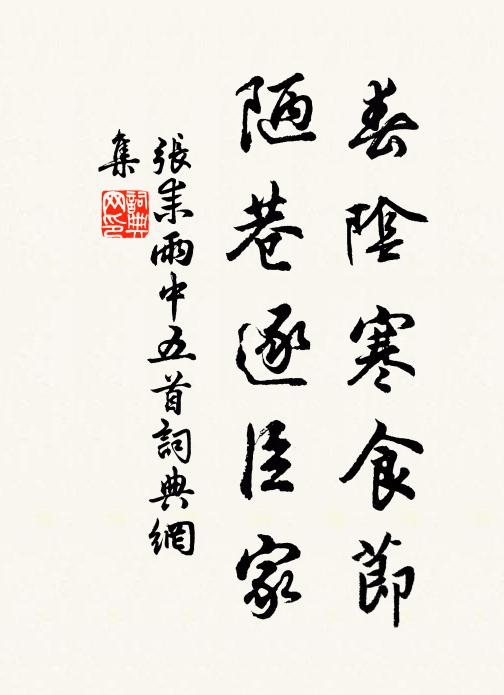 春陰寒食節
陋巷逐臣家
張耒雨中五首詞典網
集
詞典
网印